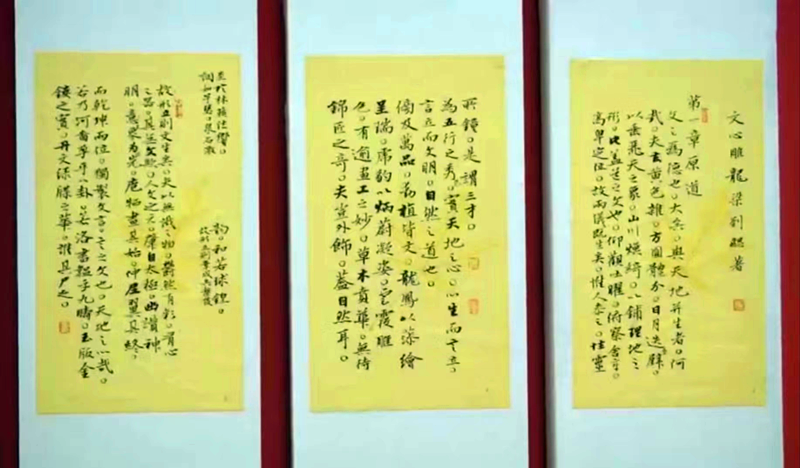 文心雕龍 梁 劉勰 著
第一章 原道
文之為德也。大矣。與天地并生者。何
哉。夫玄黄色雜。方圓體分。日月迭璧
以垂麗天之象。山川煥綺。以鋪理地之
形。此蓋道之文也。仰觀吐曜。俯察含章。
高卑定位。故兩儀既生矣。惟人参之。性靈
所鍾。是謂三才。
為五行之秀。實天地之心。心生而言立。
言立而文明。自然之道也。
傍及萬品。動植皆文。龍鳳以藻繪
呈瑞。虎豹以炳蔚凝姿。雲霞雕
色。有逾畫工之妙。草木賁華。無待
錦匠之奇。夫豈外飾。蓋自然耳。
至於林籟結響。
調如竽瑟。泉石激
韵。和若球鍠。
故形立則章成矣聲發
故形立則文生矣。夫以無識之物。鬱然有彩。有心
之器。其無文歟。人文之元。肇自太極。幽讚神
明。易象為先。庖犧畫其始。仲尼翼其終。
而乾坤兩位。獨製文言。言之文也。天地之心哉。
若乃河圖孕乎八卦。洛書韞乎九疇。玉版金
鏤之實。丹文綠牒之華。誰其尸之。